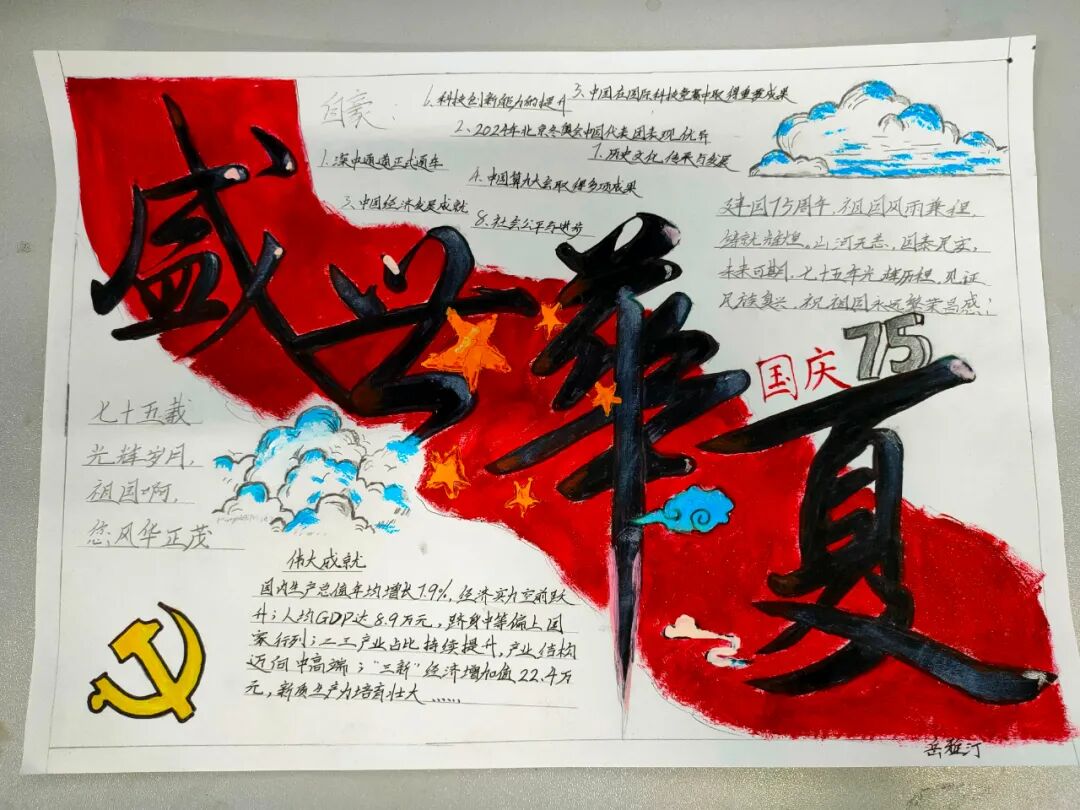 自豪:
6.科技创新能力的提升
3.中国在国际科技竞赛中取得重要成果
2.2024年北京冬奥会中国代表团表现优异
7.历史文化传承与发展
1.深中通道正式通车
4.中国第九大会取得多项成果
3.中国经济发展成就
8.社会公平与进步
建国75周年,祖国风雨兼程,
铸就辉煌。山河无恙,国泰民安,
未来可期,七十五年光辉历程,见证
民族复兴,祝祖国永远繁荣昌盛!
盛兴華夏
国庆75
七十五载
光辉岁月,
祖国啊,
您风华正茂
伟大成就
国内生产总值年均增长7.9%,经济实力空前跃
升;人均GDP达8.9万元,跻身中等偏上国
家行列;二三产业占比持续提升,产业结构
迈向中高端;“三新”经济增加值22.4万
元,新质生产力培育壮大……